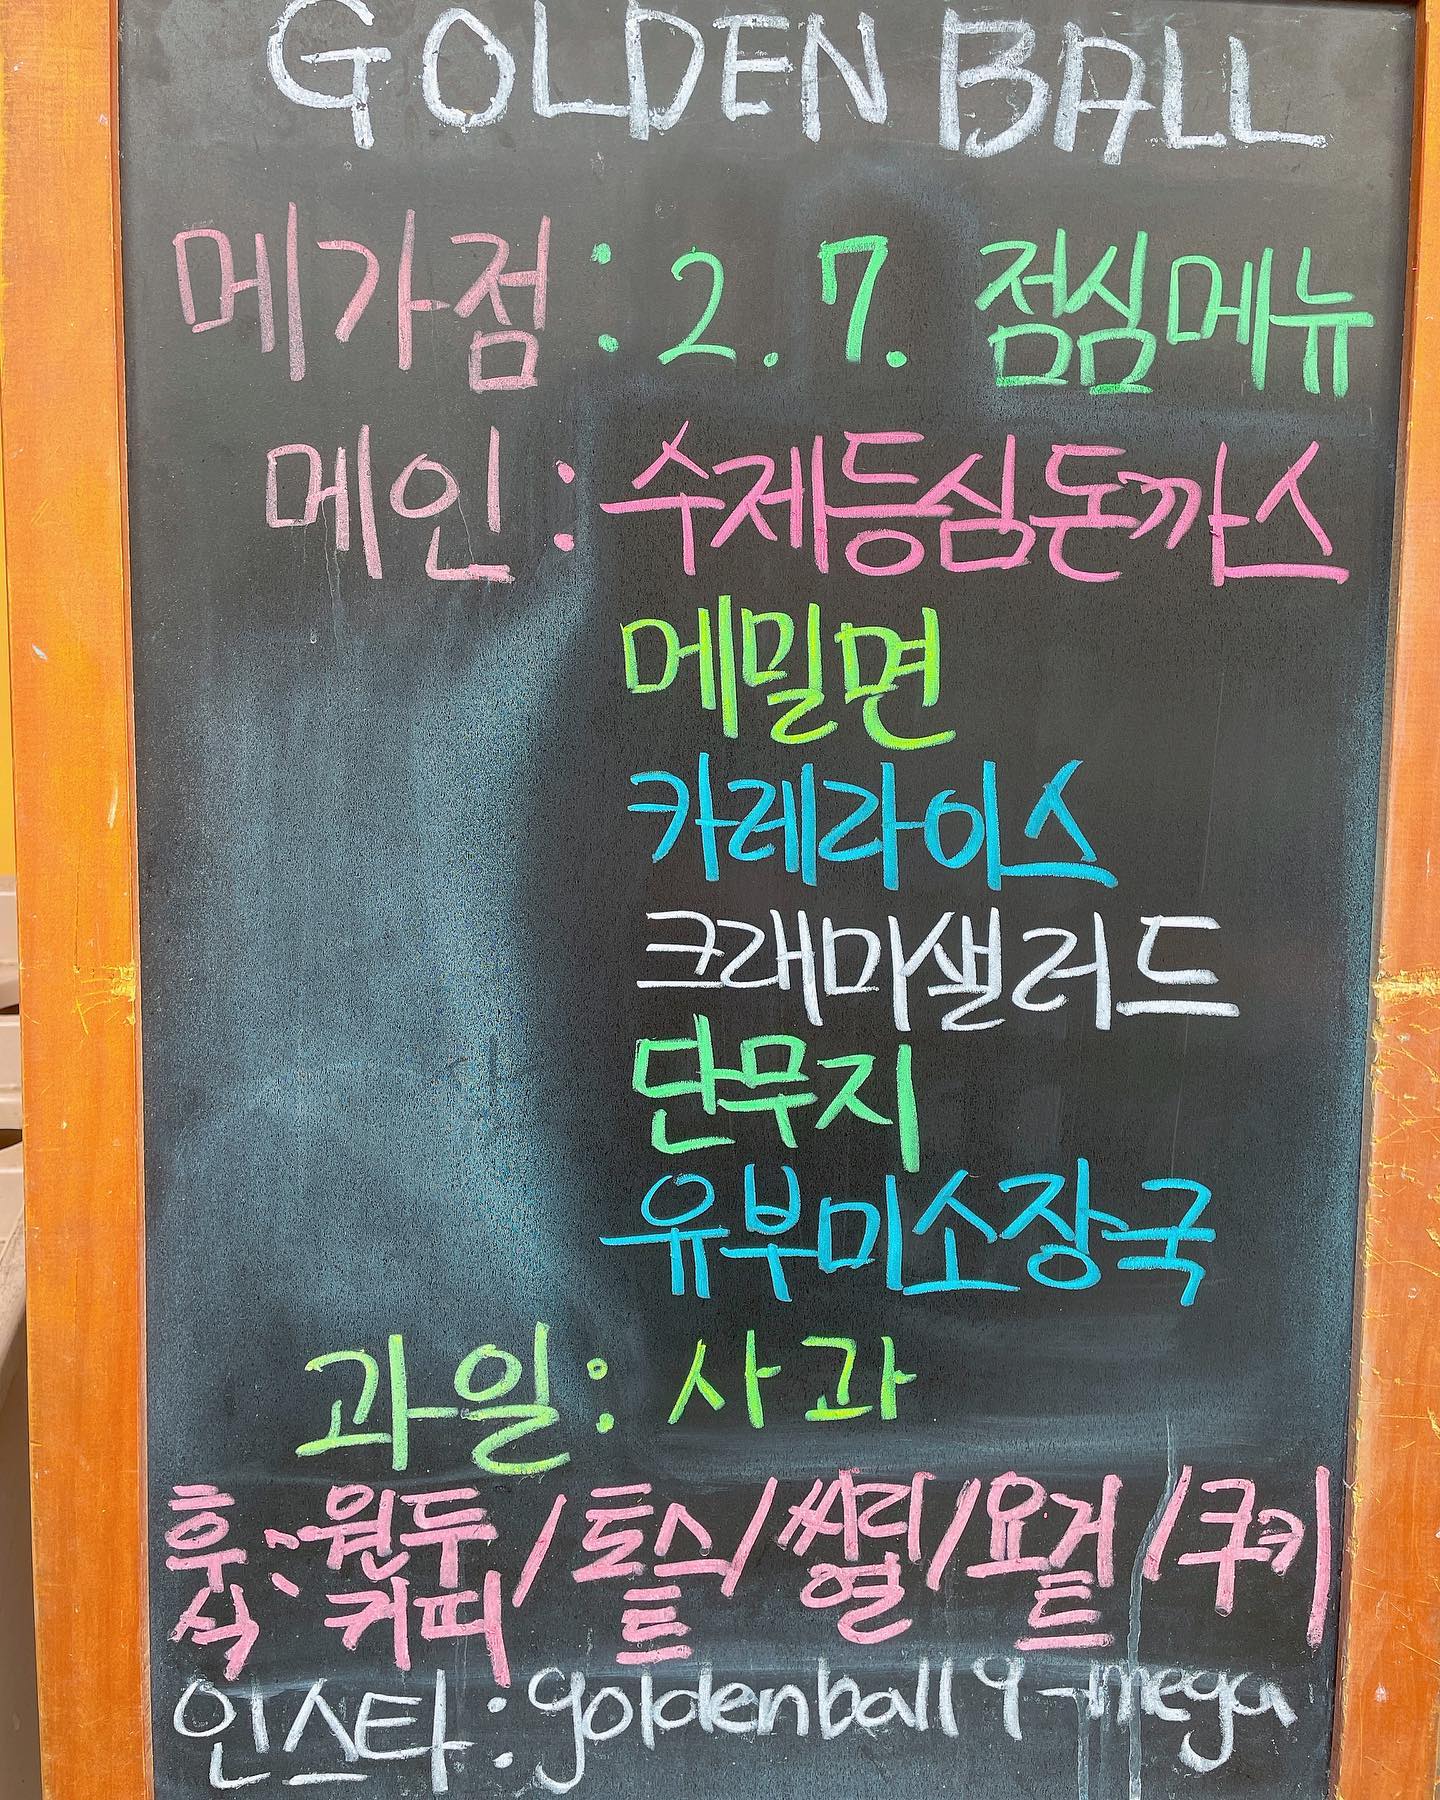 GOLDEN BALL
메가점 : 2. 7. 점심메뉴
메인 : 수제등심돈까스
메밀면
카레라이스
크래미샐러드
단무지
유부미소장국
과일 : 사과
후식 : 원두커피 / 토스트 / 씨리얼 / 요거트 / 쿠키
인스타 : goldenball9_mega